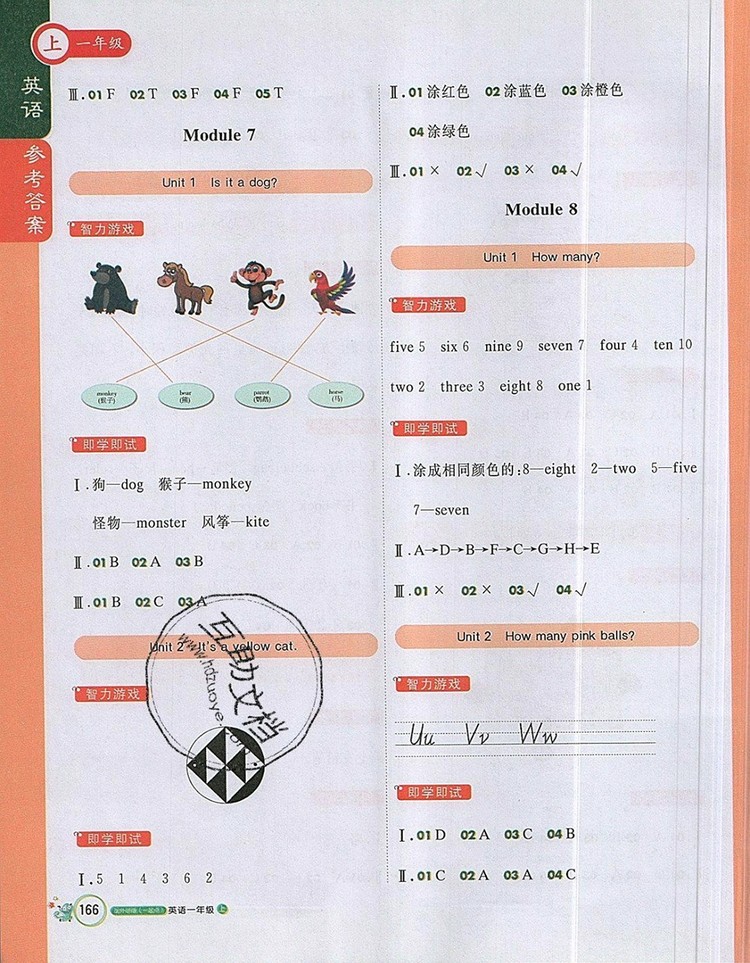 上 一年级
英语
参考答案
Ⅲ.01 F 02 T 03 F 04 F 05 T
Module 7
Unit 1 Is it a dog?
智力游戏
monkey
(猴子)
bear
(熊)
parrot
(鹦鹉)
horse
(马)
即学即试
Ⅰ.狗—dog 猴子—monkey
怪物—monster 风筝—kite
Ⅱ.01 B 02 A 03 B
Ⅲ.01 B 02 C 03 A
Unit 2 It's a yellow cat.
智力游戏
互助文档
www.hdzuoye.com
即学即试
Ⅰ.5 1 4 3 6 2
166 英语一年级 上
Ⅱ.01 涂红色 02 涂蓝色 03 涂橙色
04 涂绿色
Ⅲ.01 × 02 √ 03 × 04 √
Module 8
Unit 1 How many?
智力游戏
five 5 six 6 nine 9 seven 7 four 4 ten 10
two 2 three 3 eight 8 one 1
即学即试
Ⅰ.涂成相同颜色的:8—eight 2—two 5—five
7—seven
Ⅱ.A→D→B→F→C→G→H→E
Ⅲ.01 × 02 × 03 √ 04 √
Unit 2 How many pink balls?
智力游戏
Uu Vv Ww
即学即试
Ⅰ.01 D 02 A 03 C 04 B
Ⅱ.01 C 02 A 03 A 04 C